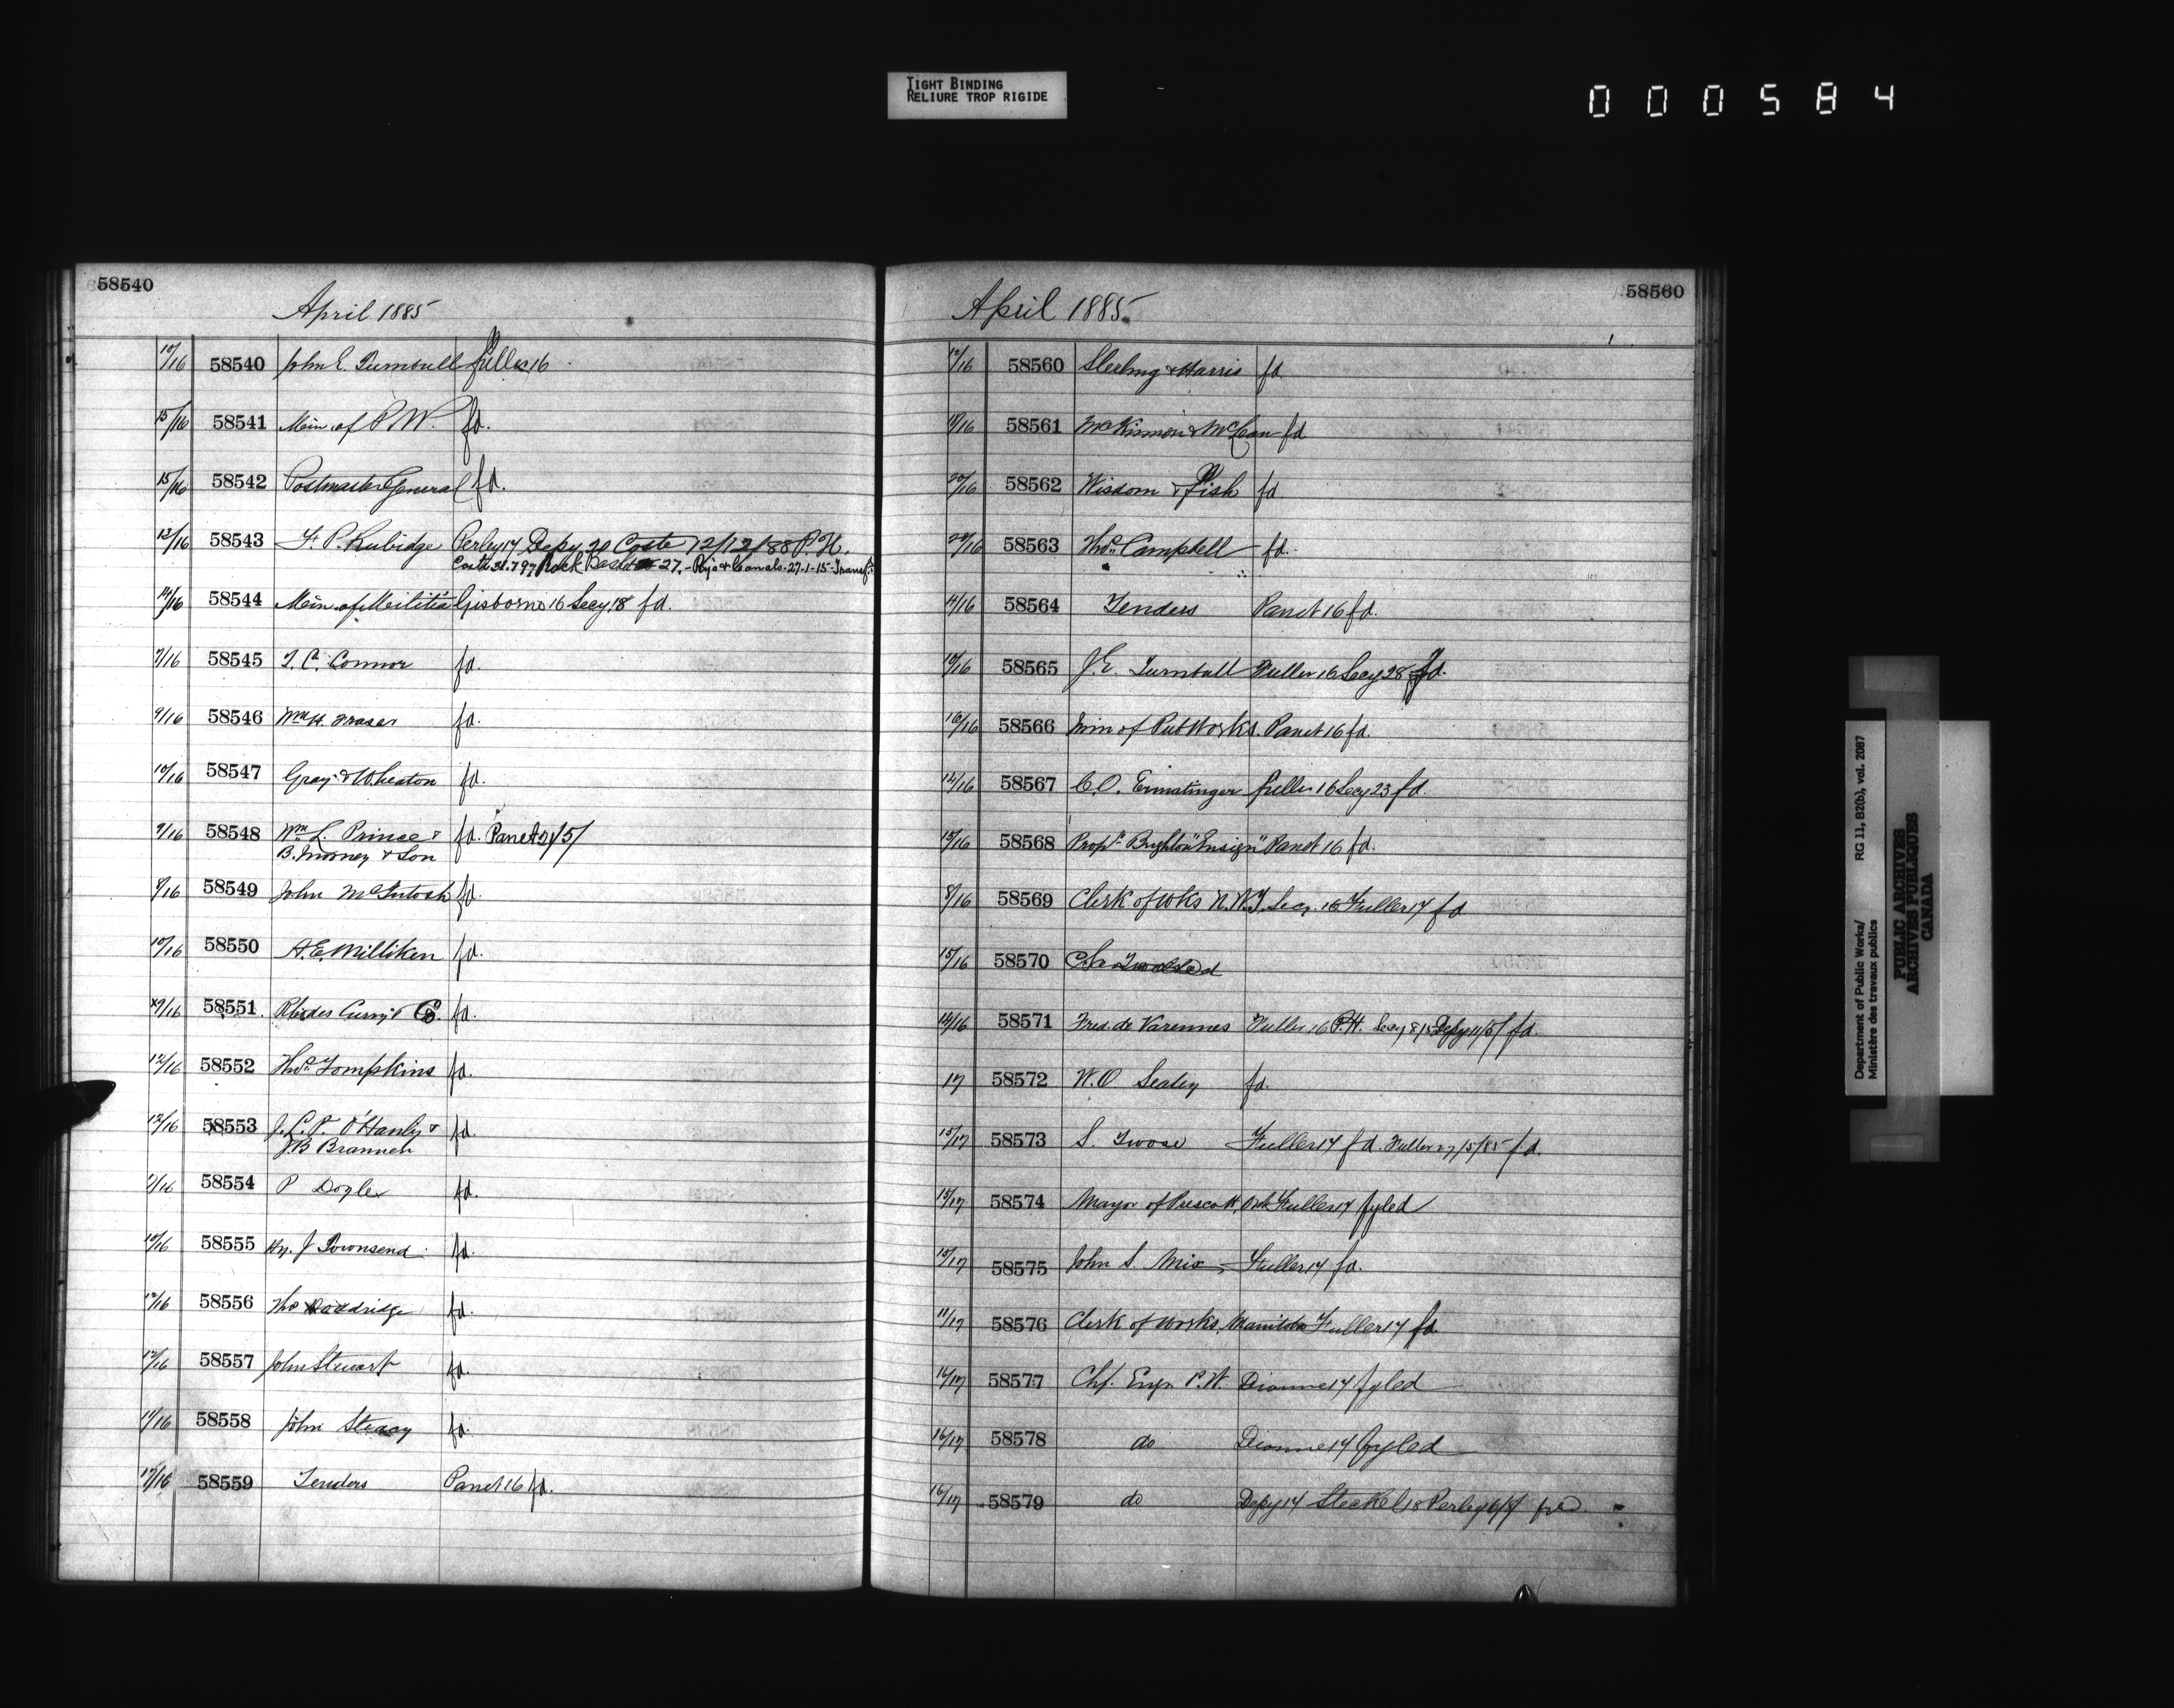 TIGHT BINDING
RELIURE TROP RIGIDE
000584
58540
April 1885
10/16 58540 John E. Turnbull Fuller 16
15/16 58541 Min. of P.W. fd.
15/16 58542 Postmaster General fd.
13/16 58543 F. P. Rubidge Perley 17 Depy 20 Coste 12/12/88 P.H.
Coste 31.7.97 Rock 27. - Rys & Canals. 27-1-15 - Transf.
14/16 58544 Min. of Militia Gisborne 16 Secy 18 fd.
7/16 58545 T. C. Connor fd.
9/16 58546 Wm H. Fraser fd.
10/16 58547 Gray & Wheaton fd.
9/16 58548 Wm L. Prince & fd. Panet
B. Mooney & Son
8/16 58549 John McIntosh fd.
10/16 58550 A. E. Milliken fd.
9/16 58551 Rhodes Curry & Co. fd.
12/16 58552 Thos Tompkins fd.
13/16 58553 J. L. P. O'Hanly & fd.
J. B Brannen
58554 P Doyle fd.
10/16 58555 Hy. J Townsend fd.
12/16 58556 Thos Doodridge fd.
12/16 58557 John Stewart fd.
11/16 58558 John Steacy fd.
58559 Tenders Panet 16 fd.
58560
April 1885
12/16 58560 Sterling & Harris fd.
58561 McKinnon & McLean fd
58562 Wisdom & Fish fd
58563 Thos Campbell fd.
11/16 58564 Tenders Panet 16 fd.
10/16 58565 J. E. Turnbull Fuller 16 Secy 28 fd.
16/16 58566 Min of Pub Works. Panet 16 fd.
12/16 58567 C. O. Ermatinger Fuller 16 Secy 23 fd.
15/16 58568 Propr Brighton "Ensign" Panet 16 fd.
8/16 58569 Clerk of Wks N.W.T. Secy. 16 Fuller 17 fd
15/16 58570
14/16 58571 Fred. de Varennes Fuller 16 P.H. Secy Depy 11/5/ fd.
17 58572 W. O Sealey fd.
15/17 58573 S. Twose Fuller 17 fd. Fuller 27/5/85 fd.
15/17 58574 Mayor of Prescott, Ont Fuller 17 fyled
15/17 58575 John S. Mix Fuller 17 fd.
11/17 58576 Clerk of Works, Manitoba Fuller 17 fd.
16/17 58577 Chf. Engr. P.W. Dionne 17 fyled
16/17 58578 do Dionne 17 fyled
16/17 58579 do Depy 17 Steckel 18 Perley
Department of Public Works/ RG 11, B2(b), vol. 2087
Ministère des travaux publics
PUBLIC ARCHIVES
ARCHIVES PUBLIQUES
CANADA